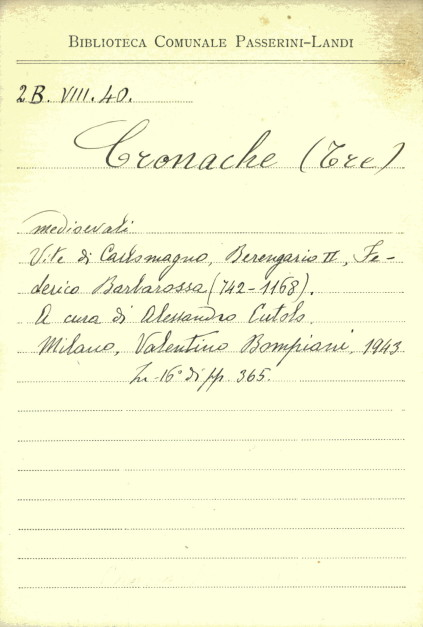 BIBLIOTECA COMUNALE PASSERINI-LANDI
2B. VIII. 40.
Cronache (Tre)
medioevali
Vite di Carlomagno, Berengario II, Fe-
derico Barbarossa (742-1168).
A cura di Alessandro Cutolo.
Milano, Valentino Bompiani, 1943
In-16° di pp. 365.